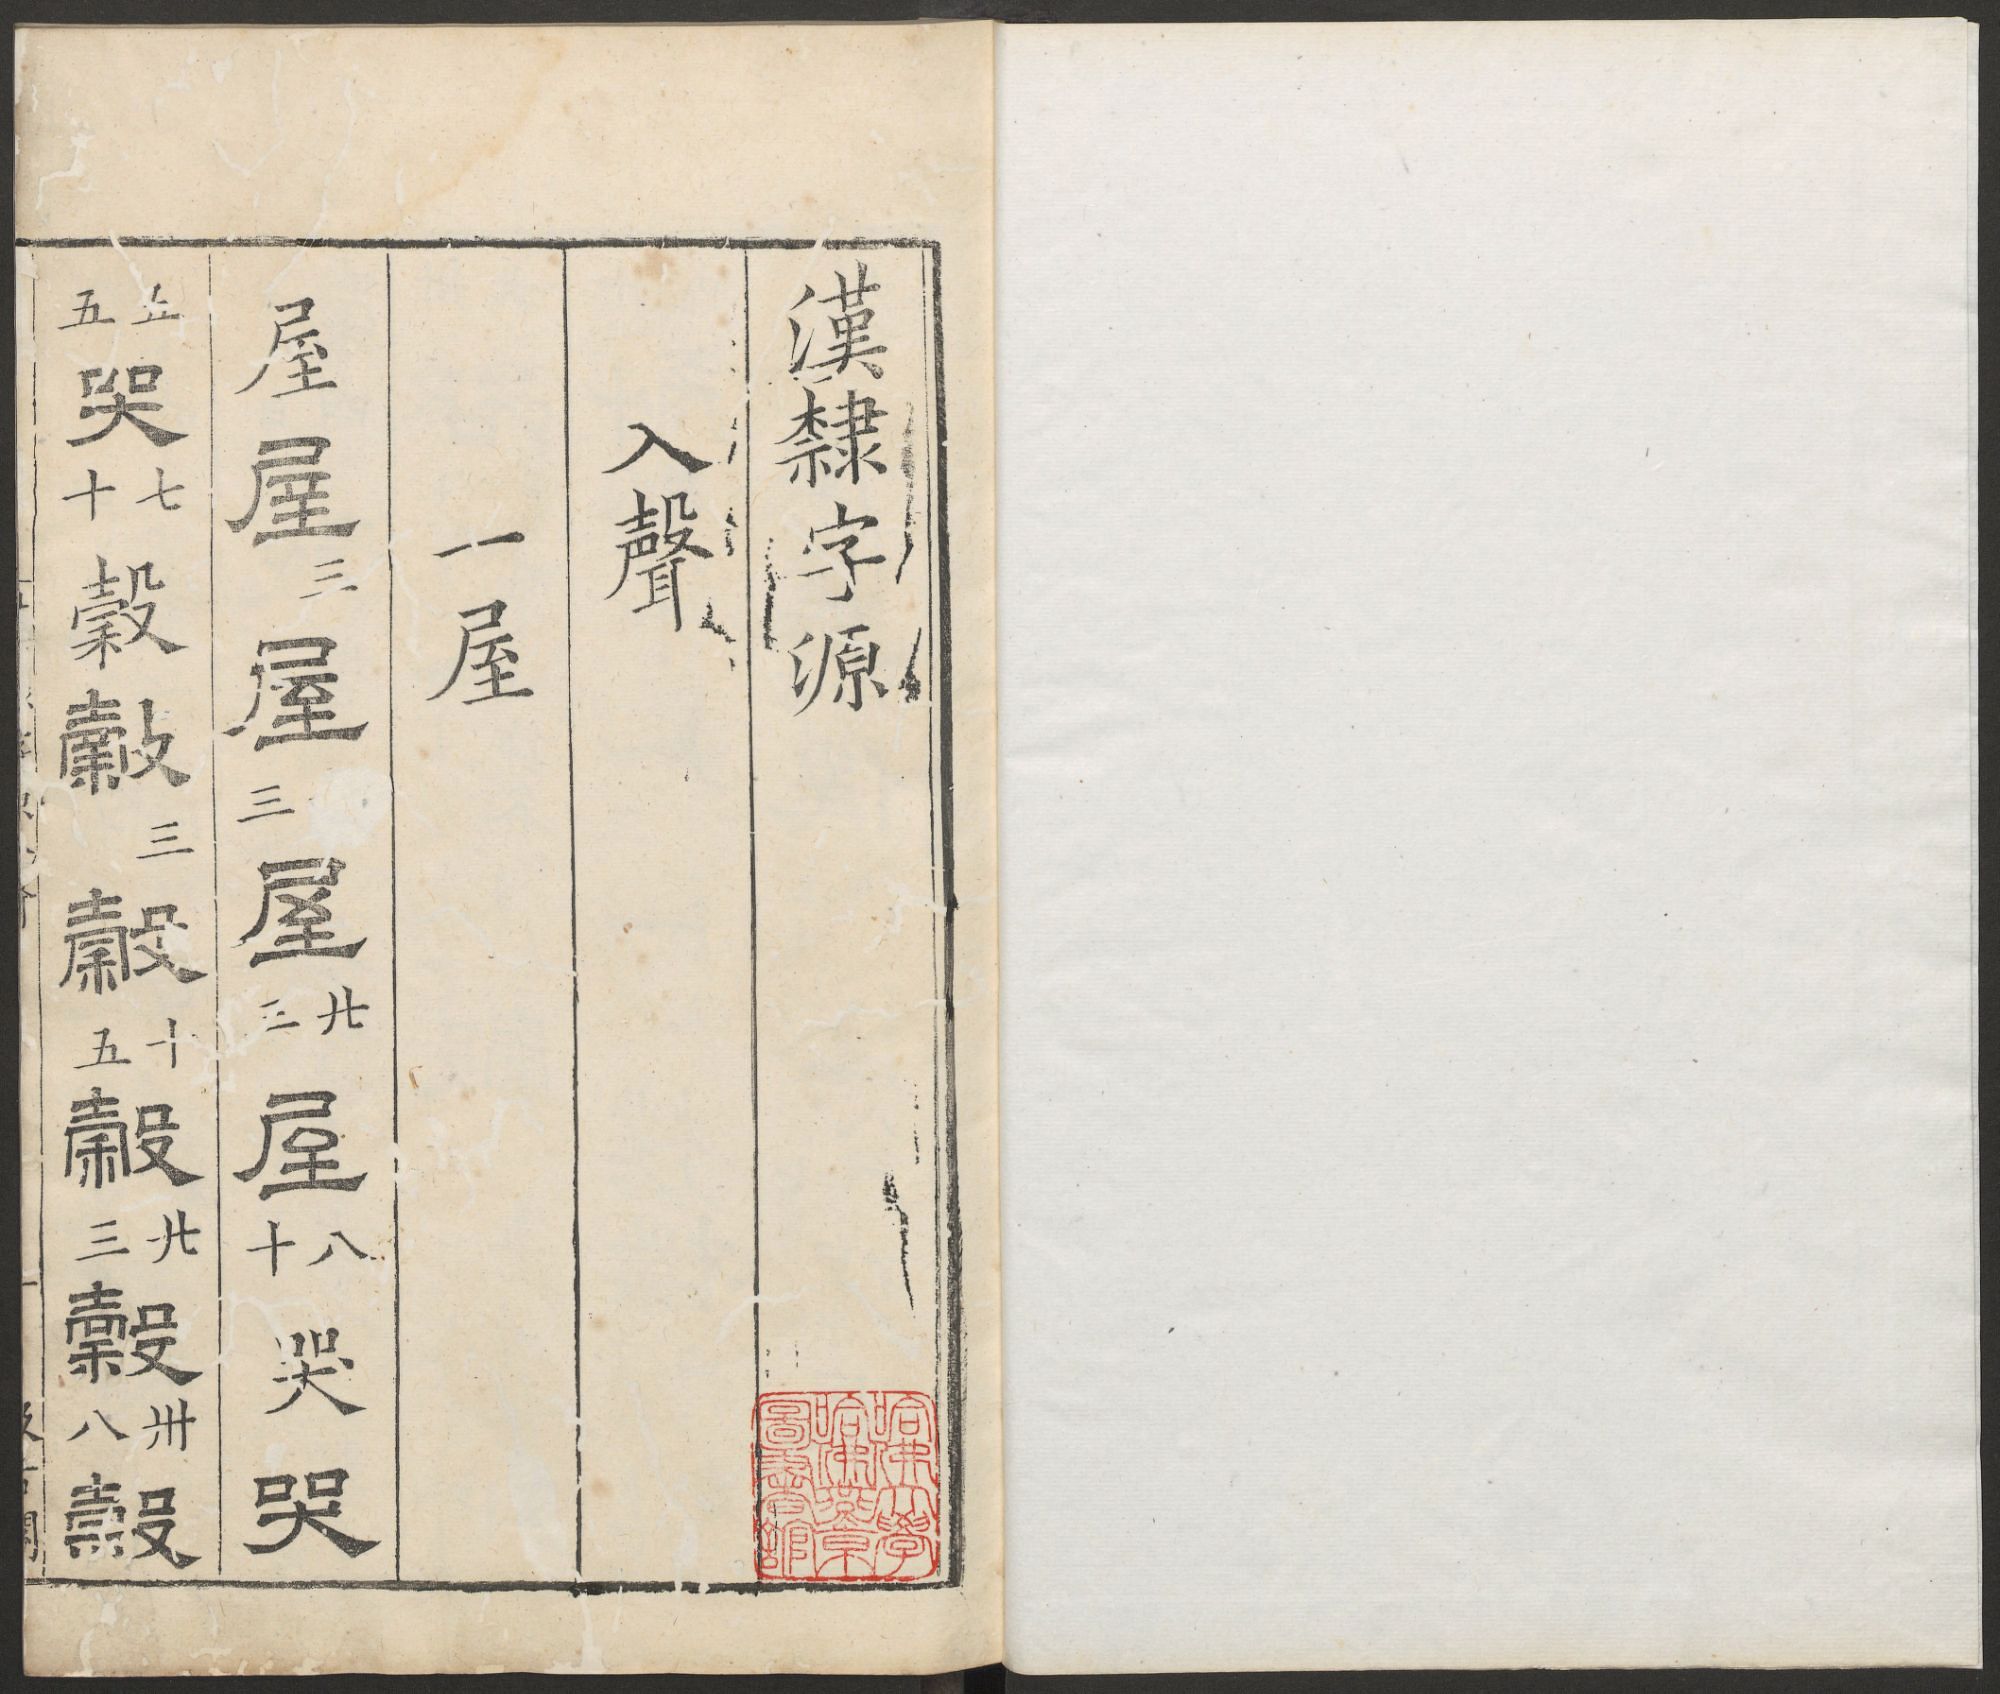 漢隸字源
入聲
一屋
屋屋三屋三屋廿三屋八十哭哭
五五哭七十穀穀三穀十五穀廿三穀卅八穀
哈佛大學
哈佛燕京
圖書館